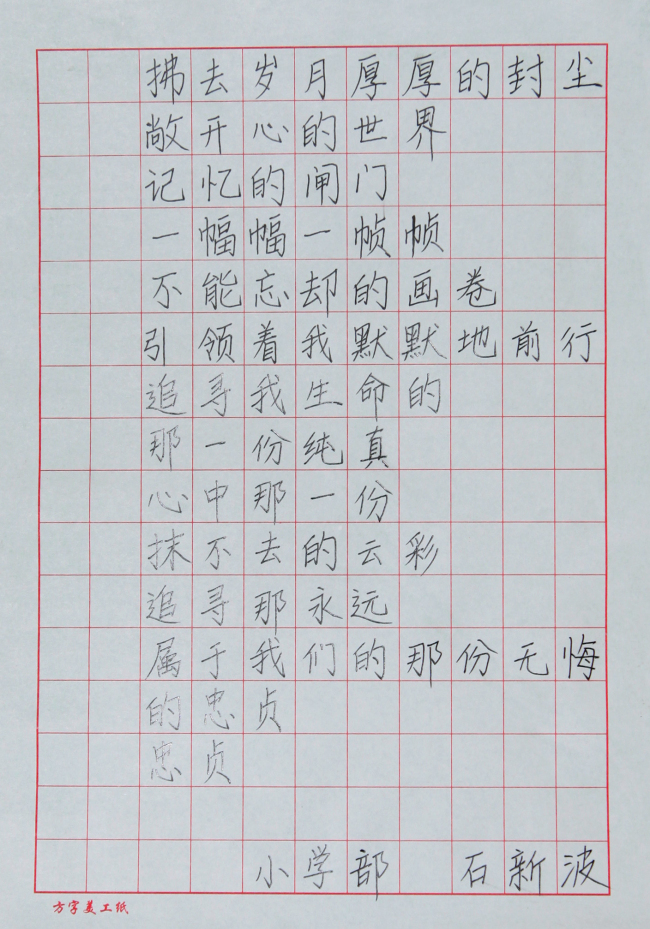 拂去岁月厚厚的封尘
敞开心的世界
记忆的闸门
一幅幅一帧帧
不能忘却的画卷
引领着我默默地前行
追寻我生命的
那一份纯真
心中那一份
抹不去的云彩
追寻那永远
属于我们的那份无悔
的忠贞
忠贞
小学部 石新波
方字美工纸